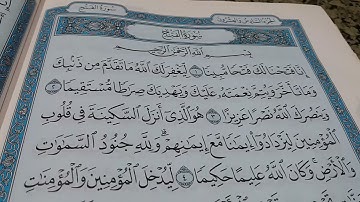 سُورَةُ الفَتْحِ
سُورَةُ الفَتْحِ
بِسْمِ ٱللَّهِ ٱلرَّحْمَٰنِ ٱلرَّحِيمِ
إِنَّا فَتَحْنَا لَكَ فَتْحًا مُّبِينًا ١ لِّيَغْفِرَ لَكَ ٱللَّهُ مَا تَقَدَّمَ مِن ذَنۢبِكَ
وَمَا تَأَخَّرَ وَيُتِمَّ نِعْمَتَهُۥ عَلَيْكَ وَيَهْدِيَكَ صِرَٰطًا مُّسْتَقِيمًا ٢
وَيَنصُرَكَ ٱللَّهُ نَصْرًا عَزِيزًا ٣ هُوَ ٱلَّذِىٓ أَنزَلَ ٱلسَّكِينَةَ فِى قُلُوبِ
ٱلْمُؤْمِنِينَ لِيَزْدَادُوٓا۟ إِيمَٰنًا مَّعَ إِيمَٰنِهِمْ ۗ وَلِلَّهِ جُنُودُ ٱلسَّمَٰوَٰتِ
وَٱلْأَرْضِ ۚ وَكَانَ ٱللَّهُ عَلِيمًا حَكِيمًا ٤ لِّيُدْخِلَ ٱلْمُؤْمِنِينَ وَٱلْمُؤْمِنَٰتِ